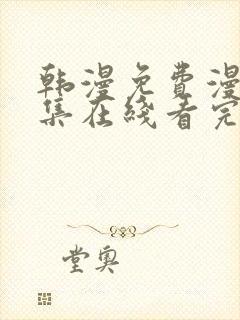 韩漫免费漫
集在线看完
堂奥